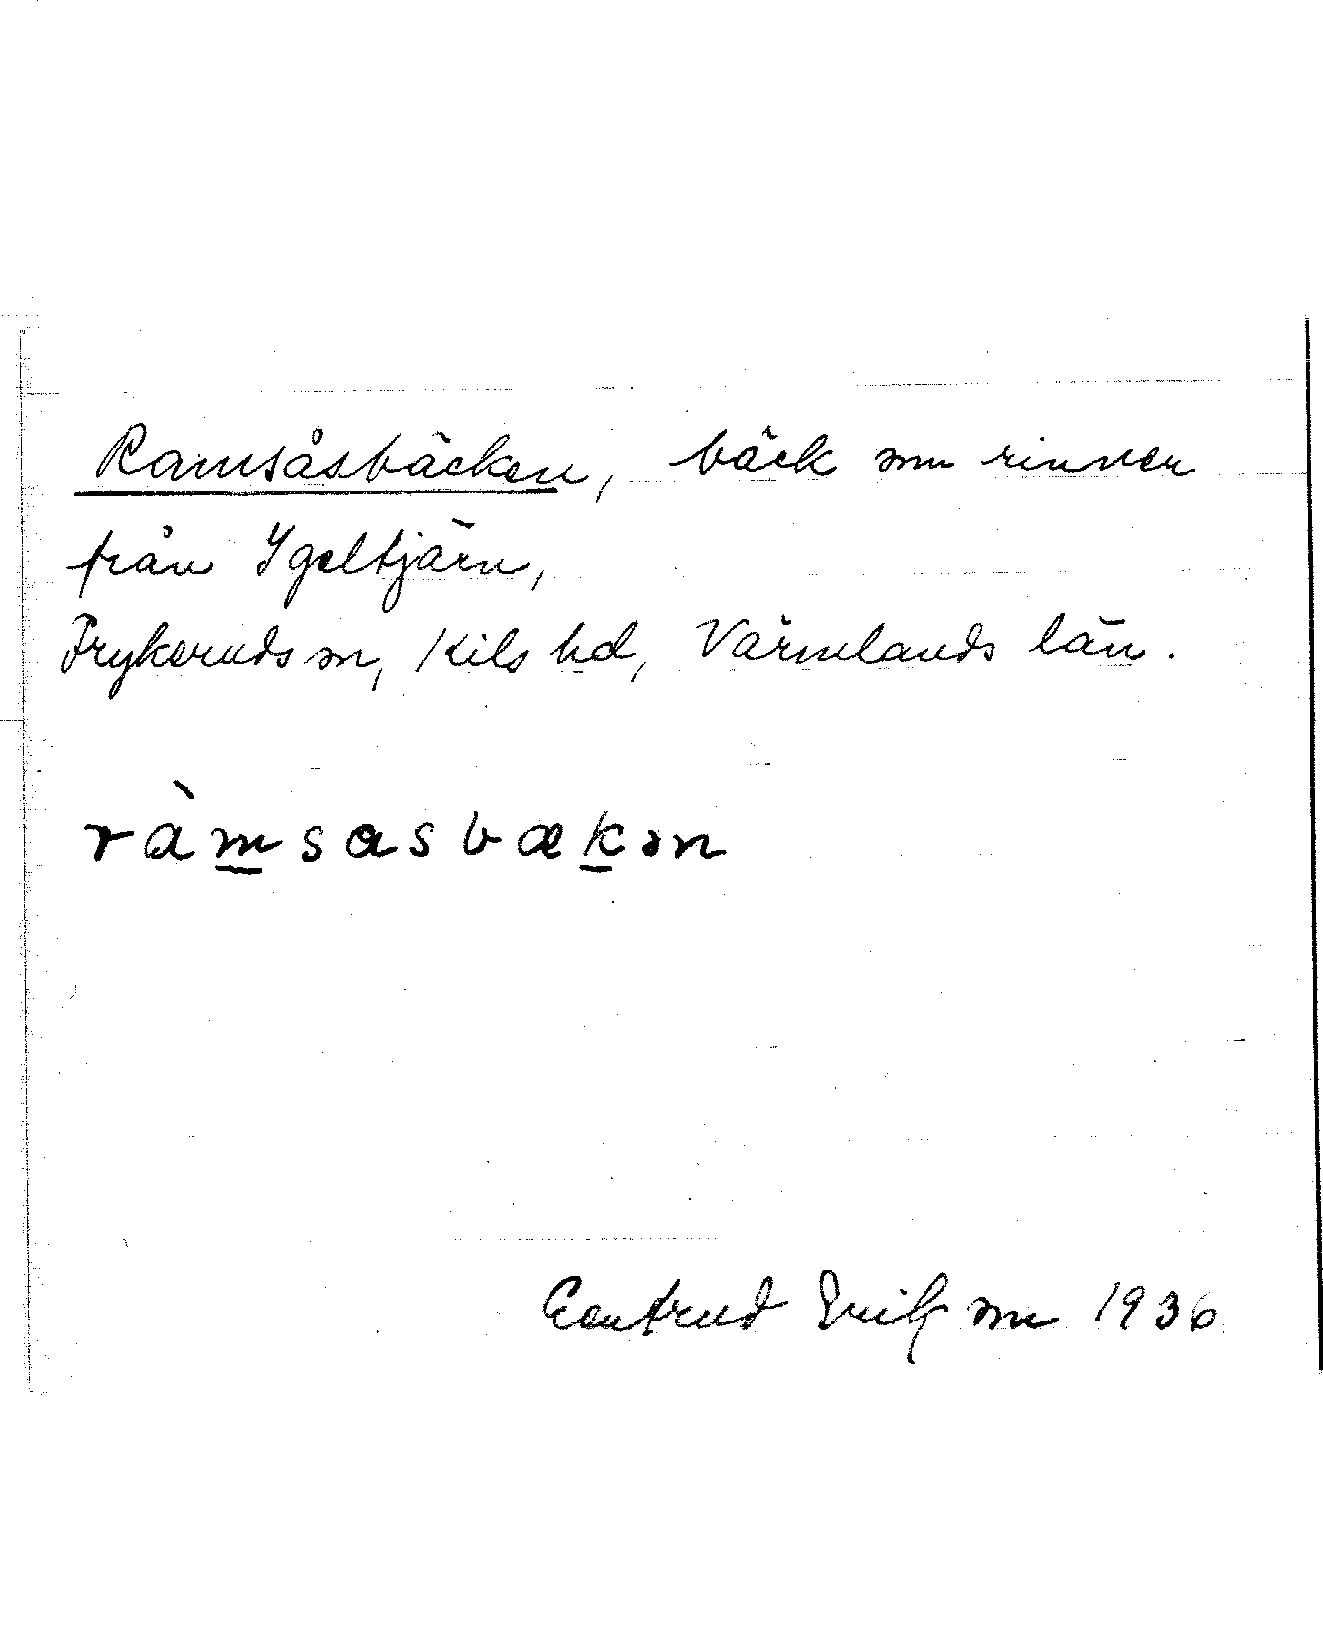 Ramsåsbäcken, bäck som rinner
från Igeltjärn,
Frykeruds sn, Kils hd, Värmlands län.
ràmsasbækən
Gertrud Erikson 1936